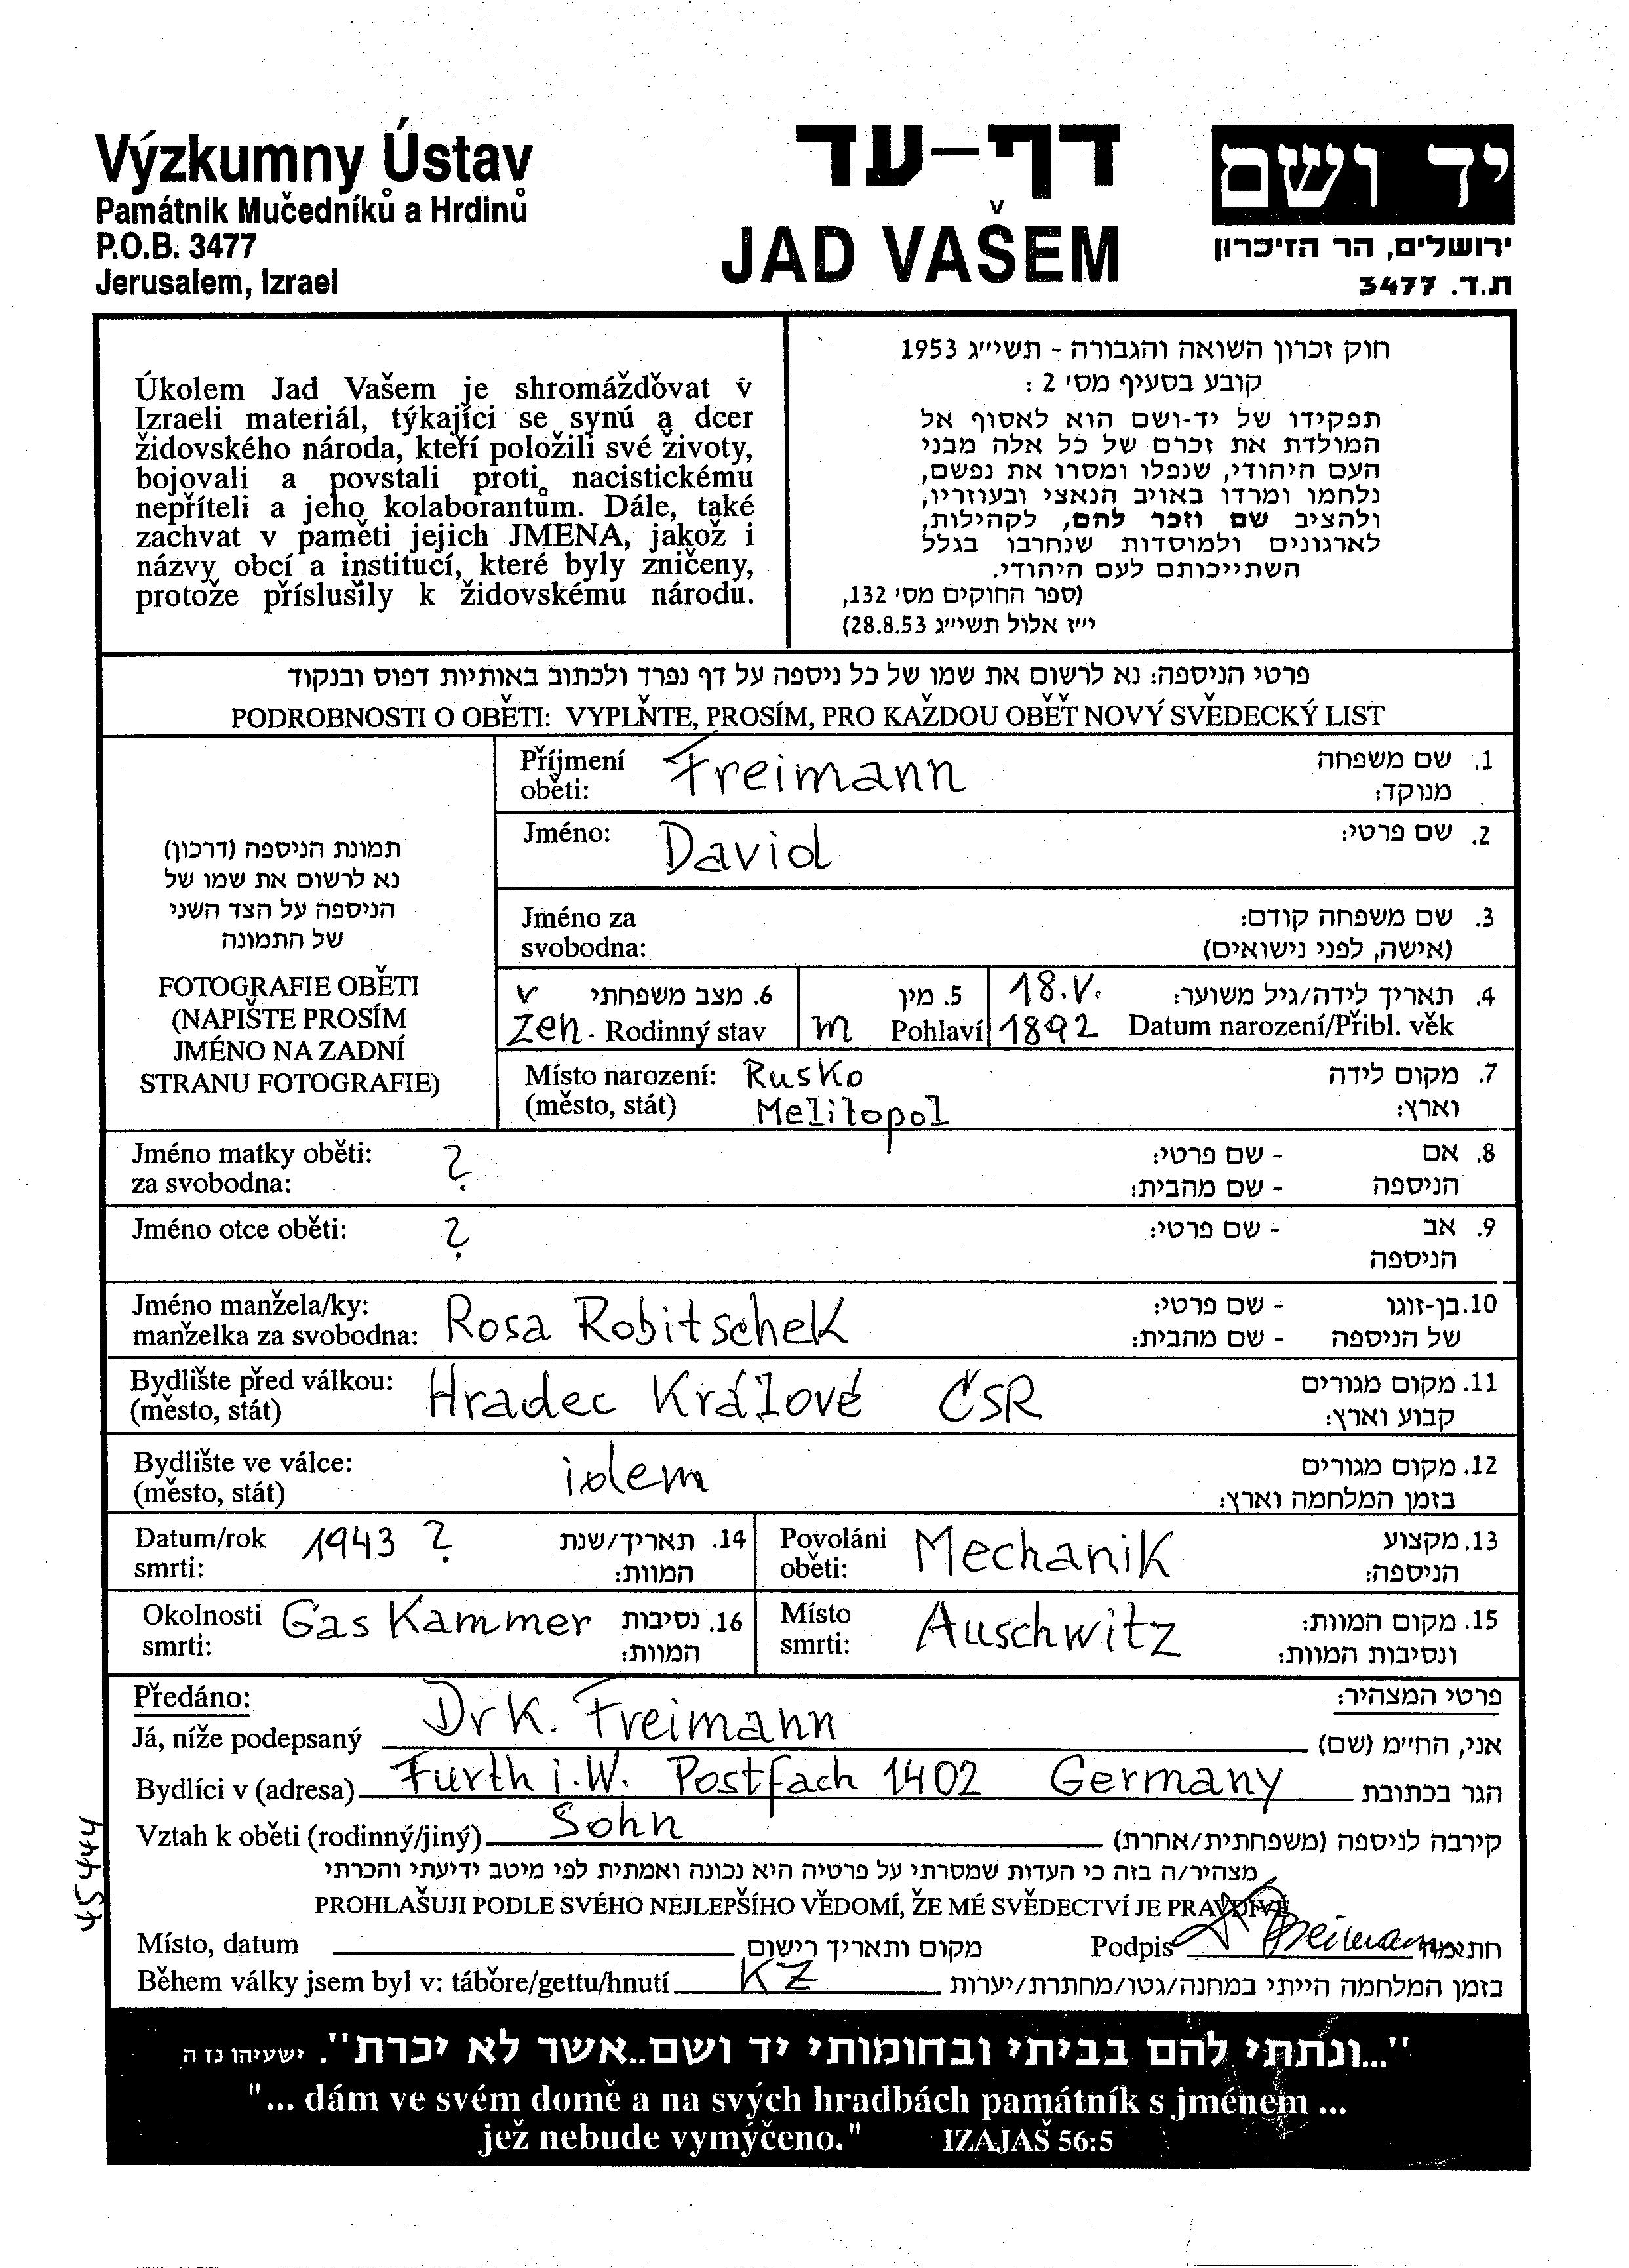 Výzkumny Ústav
Památnik Mučedníků a Hrdinů
P.O.B. 3477
Jerusalem, Izrael
דף-עד
JAD VAŠEM
יד ושם
ירושלים, הר הזיכרון
ת.ד. 3477
Úkolem Jad Vašem je shromáždǒvat v
Izraeli materiál, týkající se synú a dcer
židovského národa, kteří položili své životy,
bojovali a povstali proti nacistickému
nepříteli a jeho kolaborantům. Dále, také
zachvat v paměti jejich JMENA, jakož i
názvy obcí a institucí, které byly zničeny,
protože příslusily k židovskému národu.
חוק זכרון השואה והגבורה - תשי״ג 1953
קובע בסעיף מס׳ 2 :
תפקידו של יד-ושם הוא לאסוף אל
המולדת את זכרם של כל אלה מבני
העם היהודי, שנפלו ומסרו את נפשם,
נלחמו ומרדו באויב הנאצי ובעוזריו,
ולהציב שם וזכר להם, לקהילות,
לארגונים ולמוסדות שנחרבו בגלל
השתייכותם לעם היהודי.
(ספר החוקים מס׳ 132,
י״ז אלול תשי״ג 28.8.53)
פרטי הניספה: נא לרשום את שמו של כל ניספה על דף נפרד ולכתוב באותיות דפוס ובנקוד
PODROBNOSTI O OBĚTI: VYPLŇTE, PROSÍM, PRO KAŽDOU OBĚŤ NOVÝ SVĚDECKÝ LIST
תמונת הניספה (דרכון)
נא לרשום את שמו של
הניספה על הצד השני
של התמונה
FOTOGRAFIE OBĚTI
(NAPIŠTE PROSÍM
JMÉNO NA ZADNÍ
STRANU FOTOGRAFIE)
Příjmení Freimann 1. שם משפחה
oběti: מנוקד:
Jméno: David 2. שם פרטי:
Jméno za 3. שם משפחה קודם:
svobodna: (אישה, לפני נישואים)
6. מצב משפחתי 5. מין 18.V. 4. תאריך לידה/גיל משוער:
žen. Rodinný stav m Pohlaví 1892 Datum narození/Přibl. věk
Místo narození: Rusko 7. מקום לידה
(město, stát) Melitopol וארץ:
Jméno matky oběti: ? - שם פרטי: 8. אם
za svobodna: - שם מהבית: הניספה
Jméno otce oběti: ? - שם פרטי: 9. אב
הניספה
Jméno manžela/ky: Rosa Robitschek - שם פרטי: 10. בן-זוגו
manželka za svobodna: - שם מהבית: של הניספה
Bydlište před válkou: Hradec Králové ČSR 11. מקום מגורים
(město, stát) קבוע וארץ:
Bydlište ve válce: idem 12. מקום מגורים
(město, stát) בזמן המלחמה וארץ:
Datum/rok 1943 ? 14. תאריך/שנת
smrti: המוות:
Povoláni Mechanik 13. מקצוע
oběti: הניספה:
Okolnosti Gas Kammer 16. נסיבות
smrti: המוות:
Místo Auschwitz 15. מקום המוות:
smrti: ונסיבות המוות:
Předáno: פרטי המצהיר:
Já, níže podepsaný Dr K. Freimann אני, הח״מ (שם)
Bydlíci v (adresa) Furth i.W. Postfach 1402 Germany הגר בכתובת
Vztah k oběti (rodinný/jiný) Sohn קירבה לניספה (משפחתית/אחרת)
מצהיר/ה בזה כי העדות שמסרתי על פרטיה היא נכונה ואמתית לפי מיטב ידיעתי והכרתי
PROHLAŠUJI PODLE SVÉHO NEJLEPŠÍHO VĚDOMÍ, ŽE MÉ SVĚDECTVÍ JE PRAVDIVÉ
Místo, datum מקום ותאריך רישום Podpis Freimann חתימה
Během války jsem byl v: táboře/gettu/hnutí KZ בזמן המלחמה הייתי במחנה/גטו/מחתרת/יערות
"...ונתתי להם בביתי ובחומותי יד ושם..אשר לא יכרת". ישעיהו נז ה
"... dám ve svém domě a na svých hradbách památník s jménem ...
jež nebude vymýčeno." IZAJAŠ 56:5